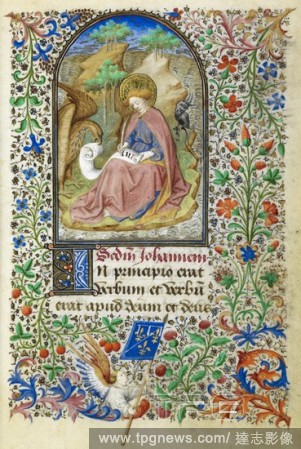 Sedm Johannem
In principio erat
verbum et verbū
erat apud deum et deus
www.tpgnews.com/ 達志影像